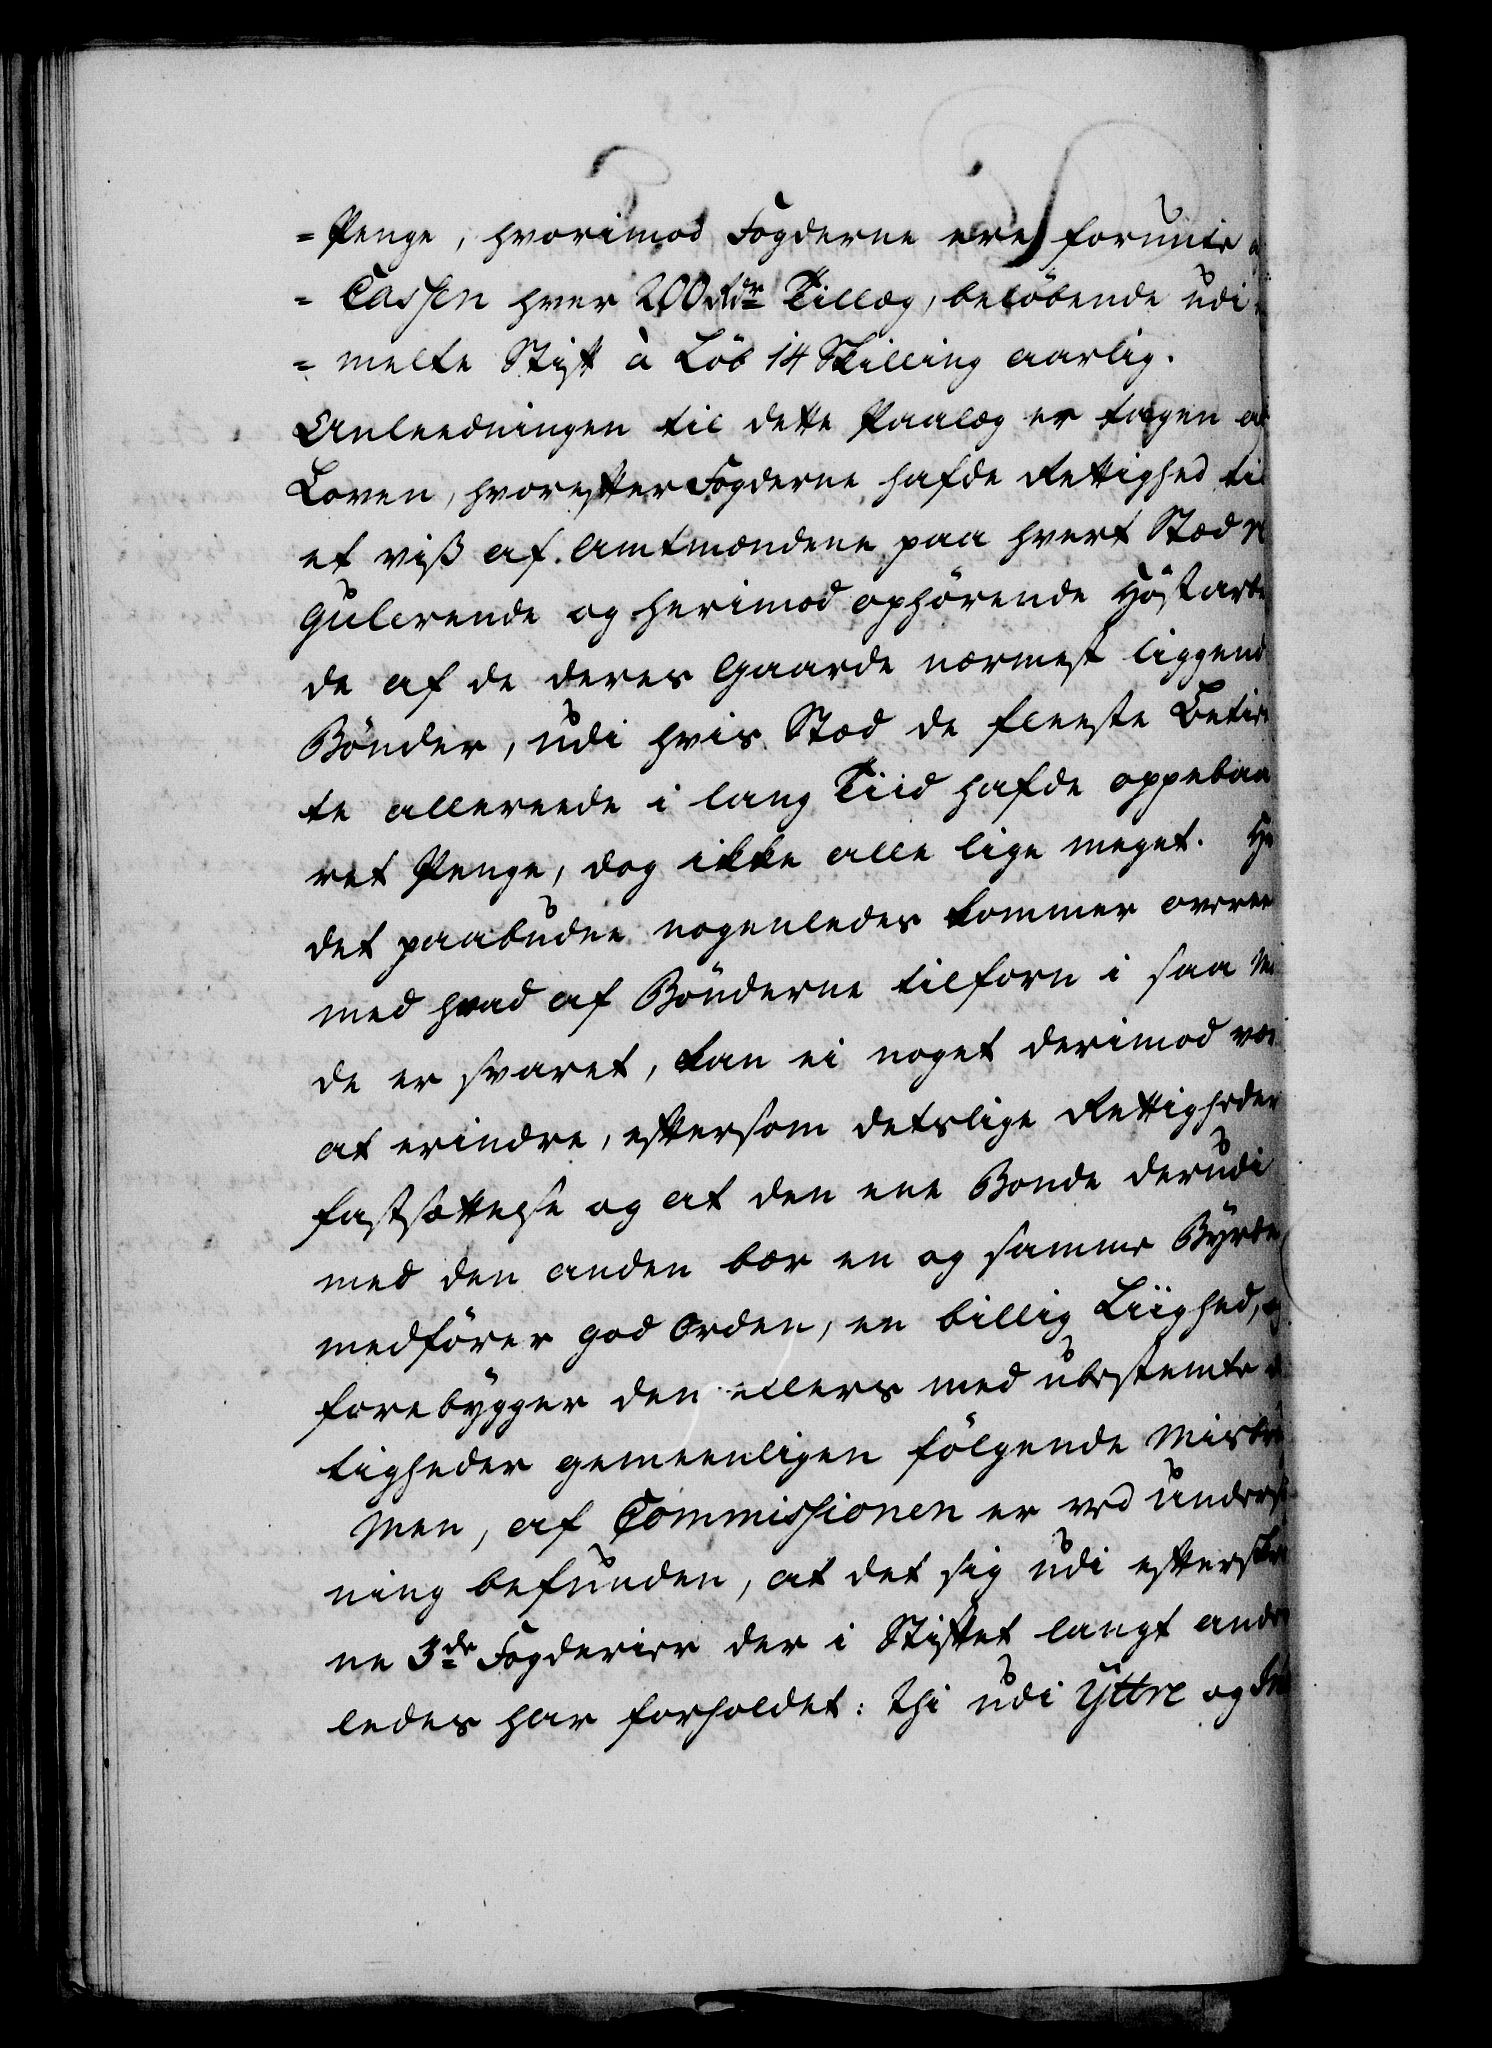 = Penge, hvorimod Fogderne ere forunte
= Cassen hver 200 Rdr Tillæg, beløbende udi
= melte Stift à Løb 14 Skilling aarlig.
Anleedningen til dette Paalæg er tagen af
Loven, hvorefter Fogderne hafde Rettighed til
et viß af Amtmændene paa hvert Stæd re
gulerende og herimod ophørende Høstarbe
de af de deres Gaarde nærmest liggend
Bønder, udi hvis Stæd de fleeste Betien
te allereede i lang Tiid hafde oppebaa
ret Penge, dog ikke alle lige meget. Hv
det paabudne nogenledes kommer overee
med hvad af Bønderne tilforn i saa Maa
de er svaret, kan ei noget derimod væ
at erindre, eftersom deslige Rettigheder
fastsættelse og at den ene Bonde derudi
med den anden bær en og samme Byrde
medfører god Orden, en billig Liighed, og
forebygger den ellers med ubestemte
tigheder gemeenligen følgende Misbru
Men, af Commissionen er ved Unders
ning befunden, at det sig udi efterskre
ne 3de Fogderier der i Stiftet langt ander
ledes har forholdet: thi udi Yttre og